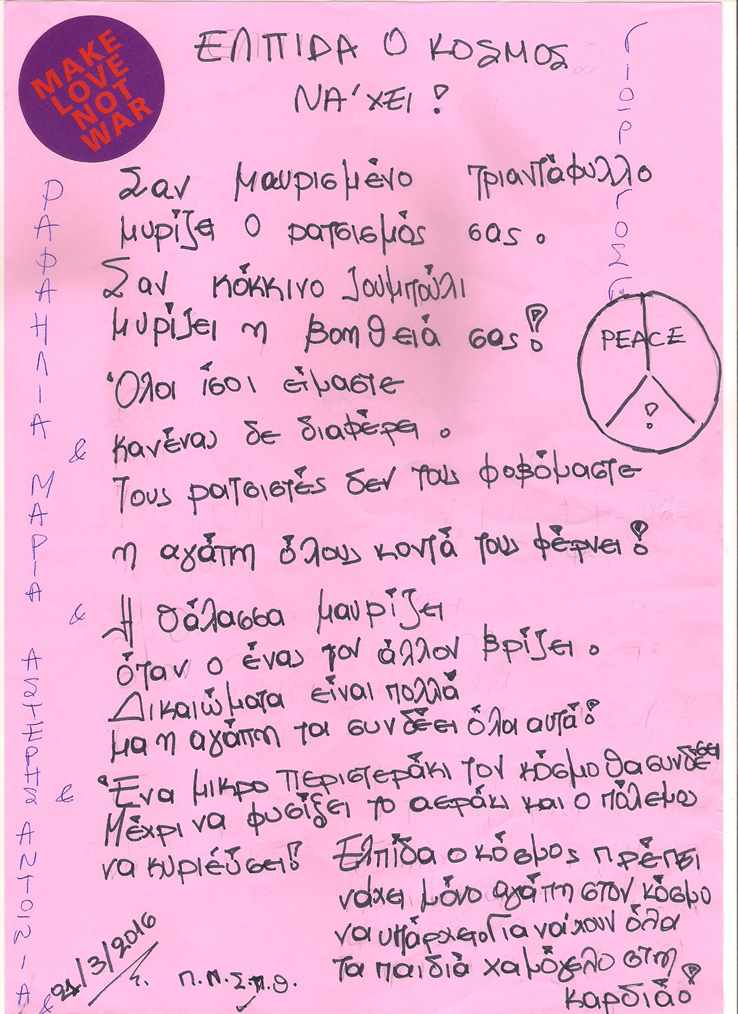 MAKE
LOVE
NOT
WAR
ΕΛΠΙΔΑ Ο ΚΟSMOS
ΝΑ'ΧΕΙ!
Σαν μαυρισμένο τριαντάφυλλο
μυρίζει ο ρατσισμός σας.
Σαν κόκκινο ζουμπούλι
μυρίζει η βοηθειά σας!
Όλοι ίσοι είμαστε
κανένας δε διαφέρει.
Τους ρατσιστές δεν τους φοβόμαστε
η αγάπη όλους κοντά τους φέρνει!
Η θάλασσα μαυρίζει
όταν ο ένας τον άλλον βρίζει.
Δικαιώματα είναι πολλά
μα η αγάπη τα συνδέει όλα αυτά!
Ένα μικρο περιστεράκι τον κόσμο θα συνδέσει
Μέχρι να φυσίξει το αεράκι και ο πόλεμος
να κυριεύσει!
Ελπίδα ο κόσμος πρέπει
νάχει μόνο αγάπη στον κόσμο
να υπάρχει Για να'χουν όλα
τα παιδιά χαμόγελο στη
καρδιά!
PEACE
!
ΡΑΦΑΗΛΙΑ & ΜΑΡΙΑ & ΑΣΤΕΡΗΣ & ΑΝΤΩΝΙΑ &
ΓΙΩΡΓΟΣ
21/3/2016
τ. Π.Ν.Σ.Π.Θ.